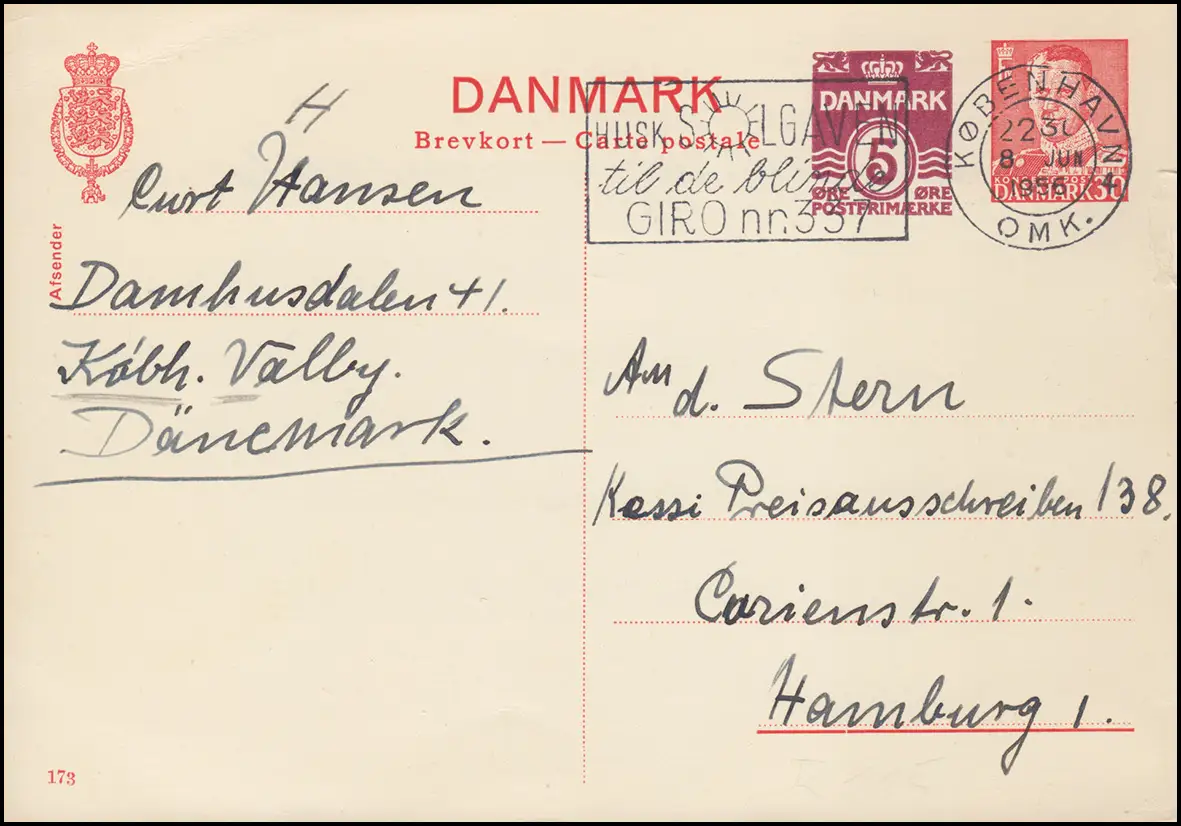 DANMARK
Brevkort — Carte postale
H
Curt Hansen
Afsender
Damhusdalen 41.
Købh. Valby.
Dänemark.
HUSK SOLGAVEN
til de blinde
GIRO nr. 337
DANMARK
5
ØRE ØRE
POSTFRIMÆRKE
KØBENHAVN
2230
8 JUN
1956
OMK.
DANMARK
An
d. Stern
Kossi Preisausschreiben 138.
Curienstr. 1.
Hamburg 1.
173